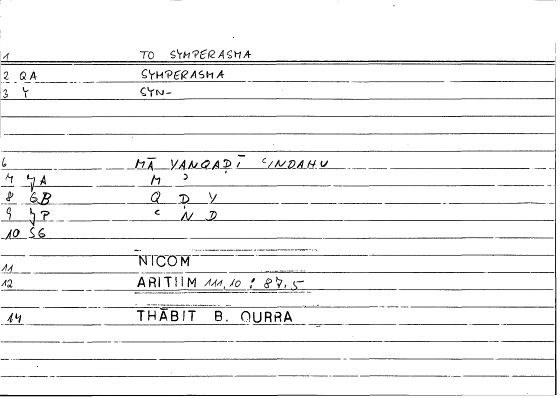 1 TO SYMPERASMA
2 QA SYMPERASMA
3 Y SYN-
6 MĀ YANQAḌĪ ʿINDAHU
7 YA M ʾ
8 GB Q Ḍ Y
9 YP ʿ N D
10 SG
11 NICOM
12 ARITIIM 111,10 : 87,5
14 THĀBIT B. QURRA